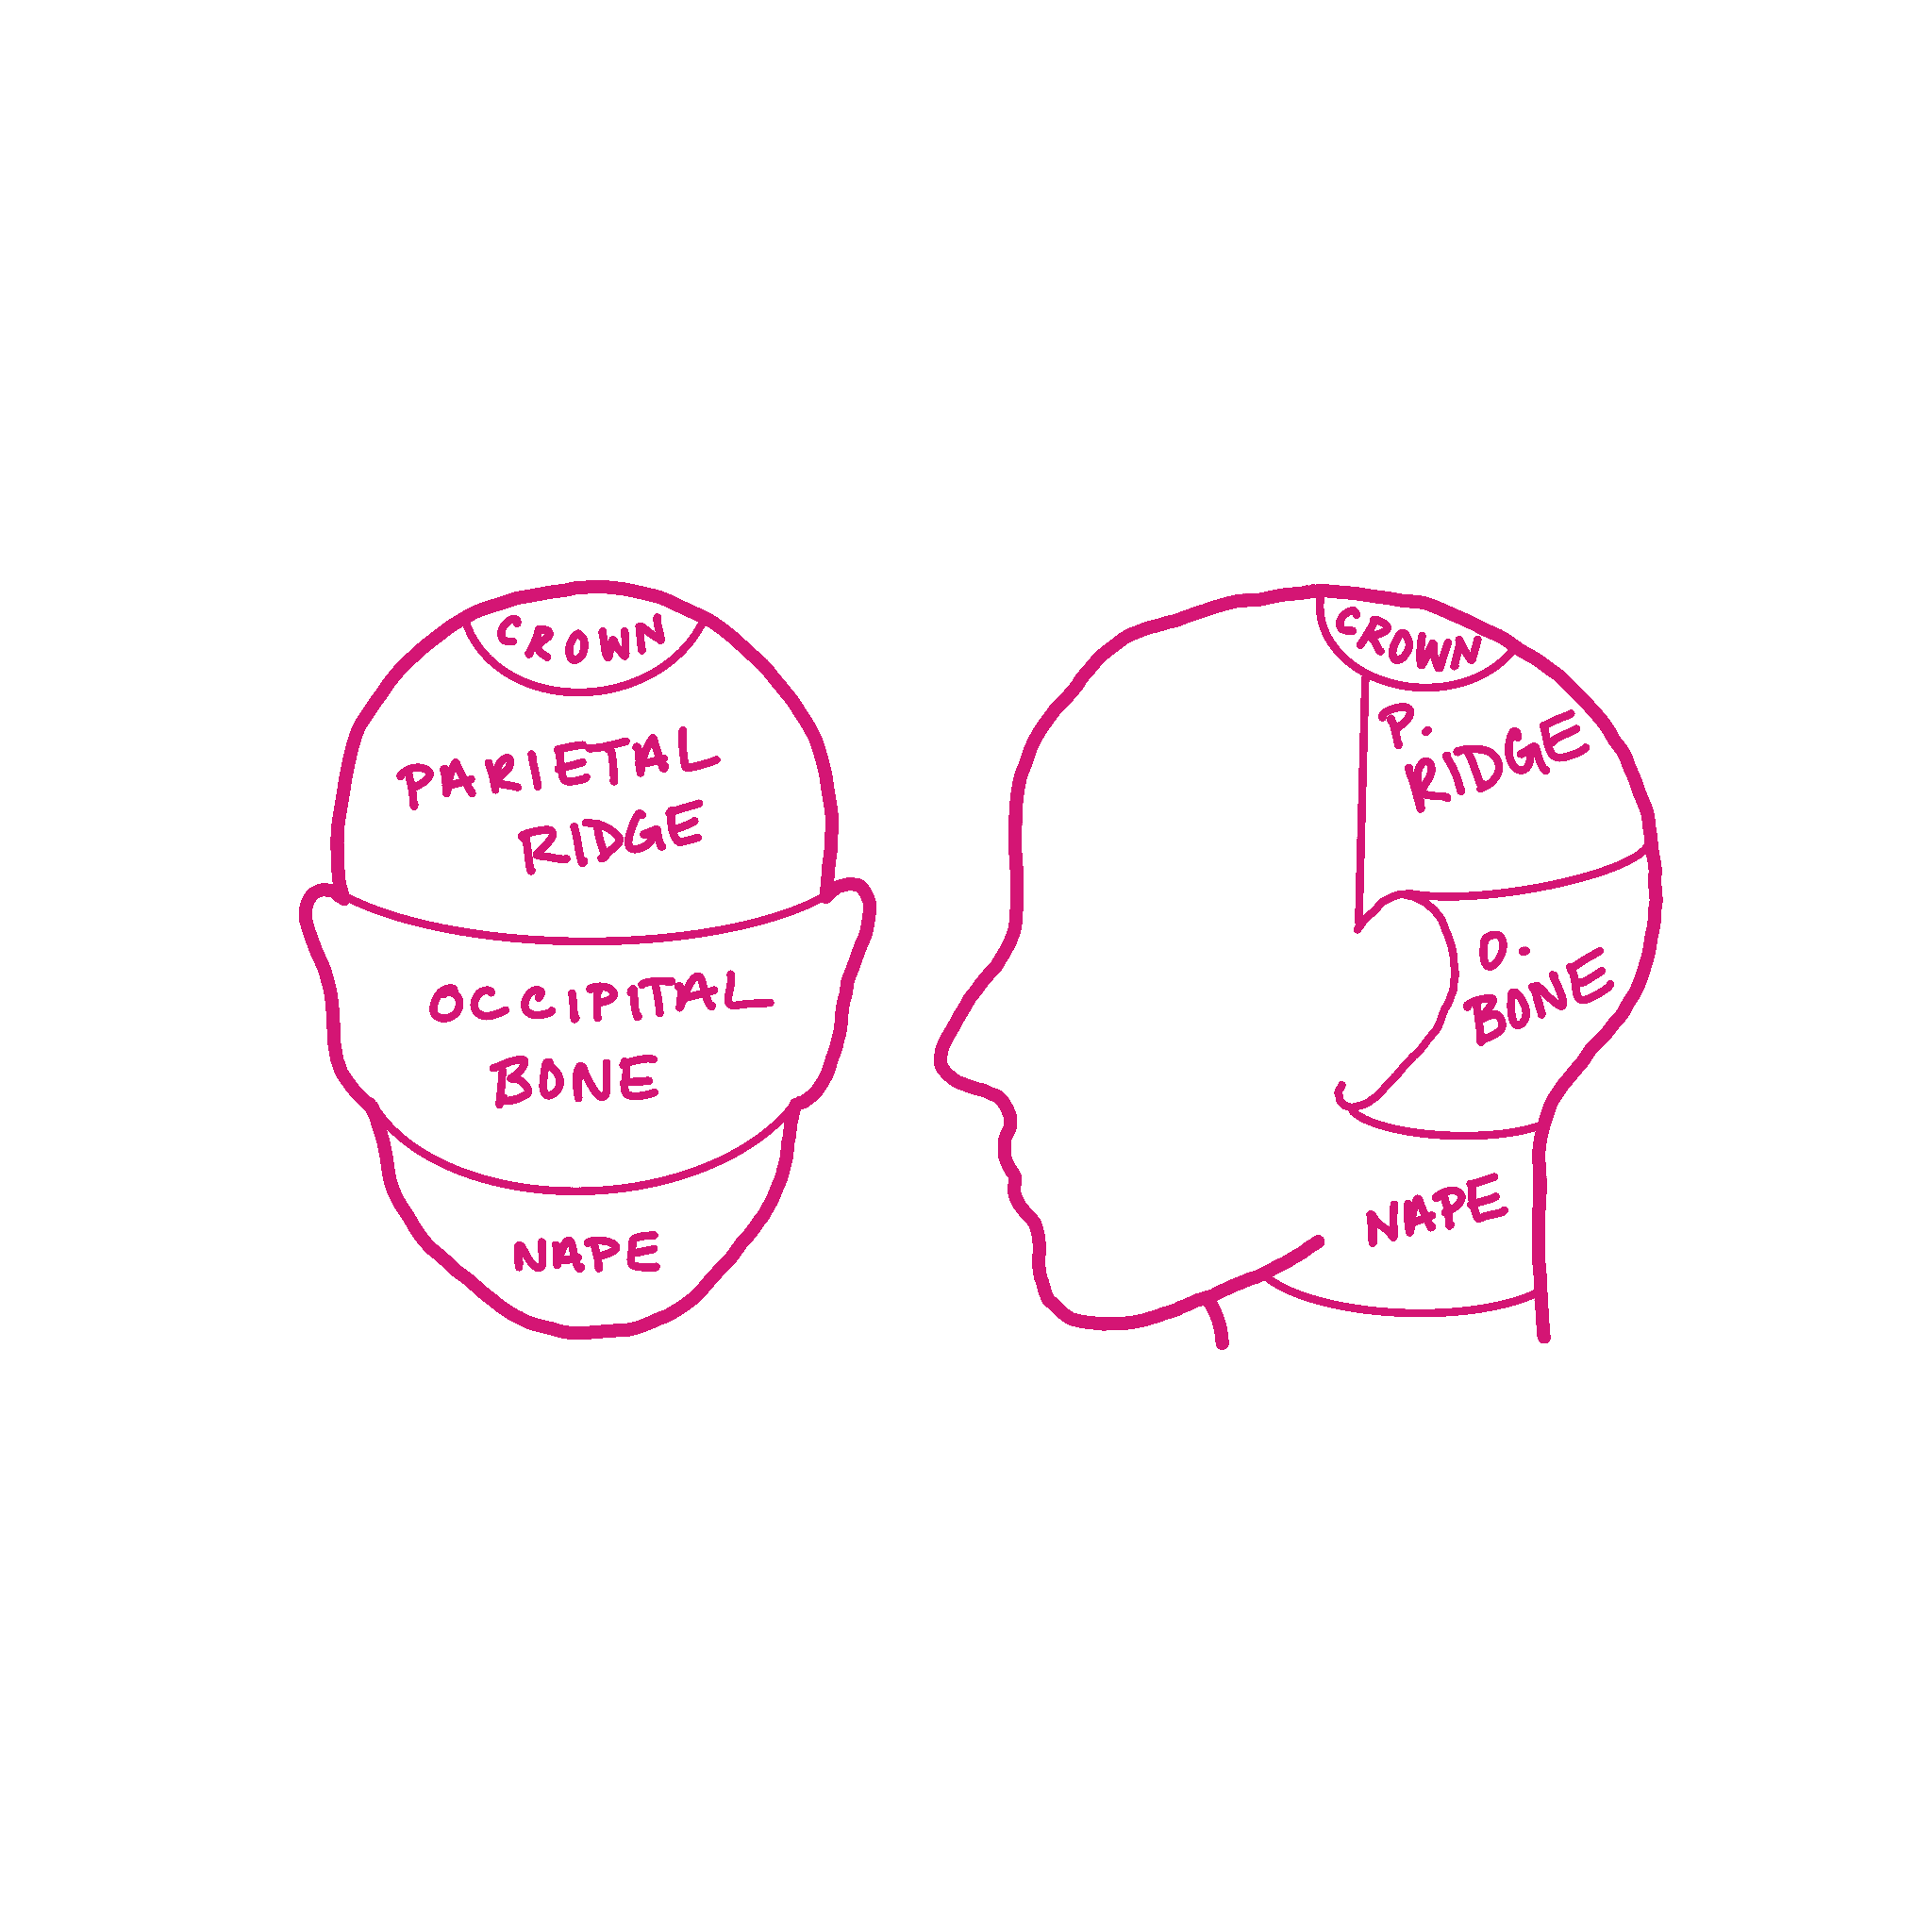 CROWN
PARIETAL
RIDGE
OCCIPITAL
BONE
NAPE
CROWN
P.
RIDGE
O.
BONE
NAPE